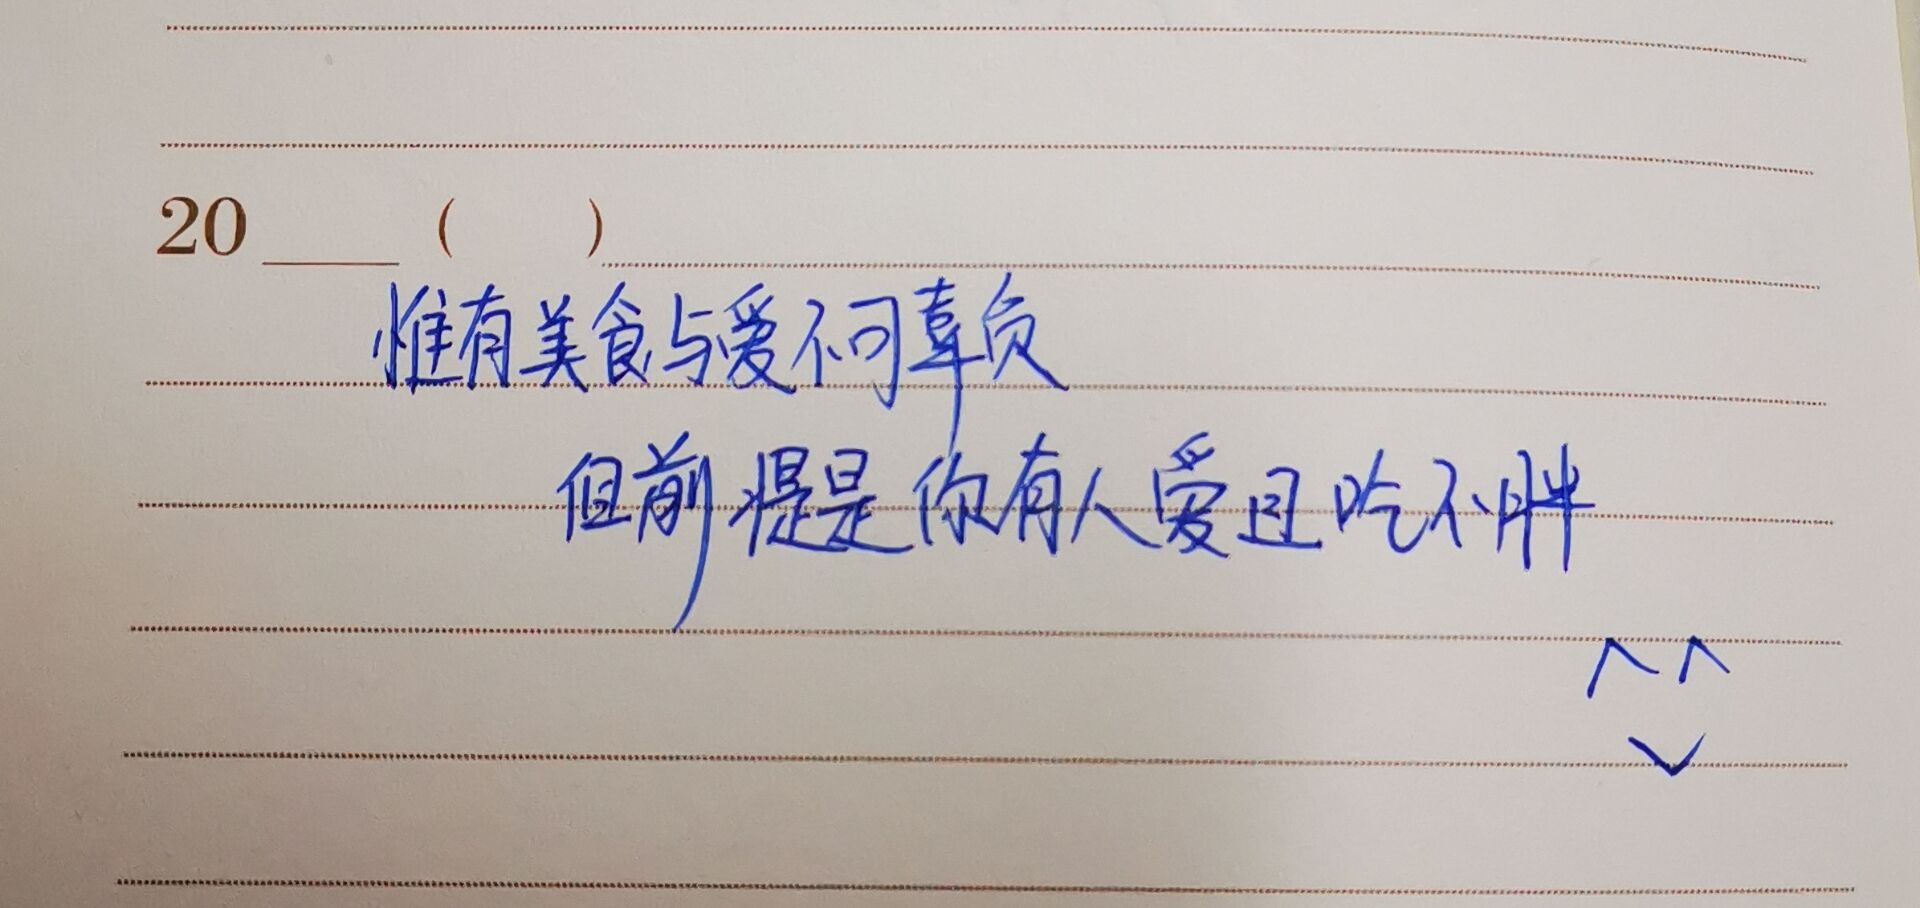 20____ (    )
惟有美食与爱不可辜负
但前提是你有人爱且吃不胖